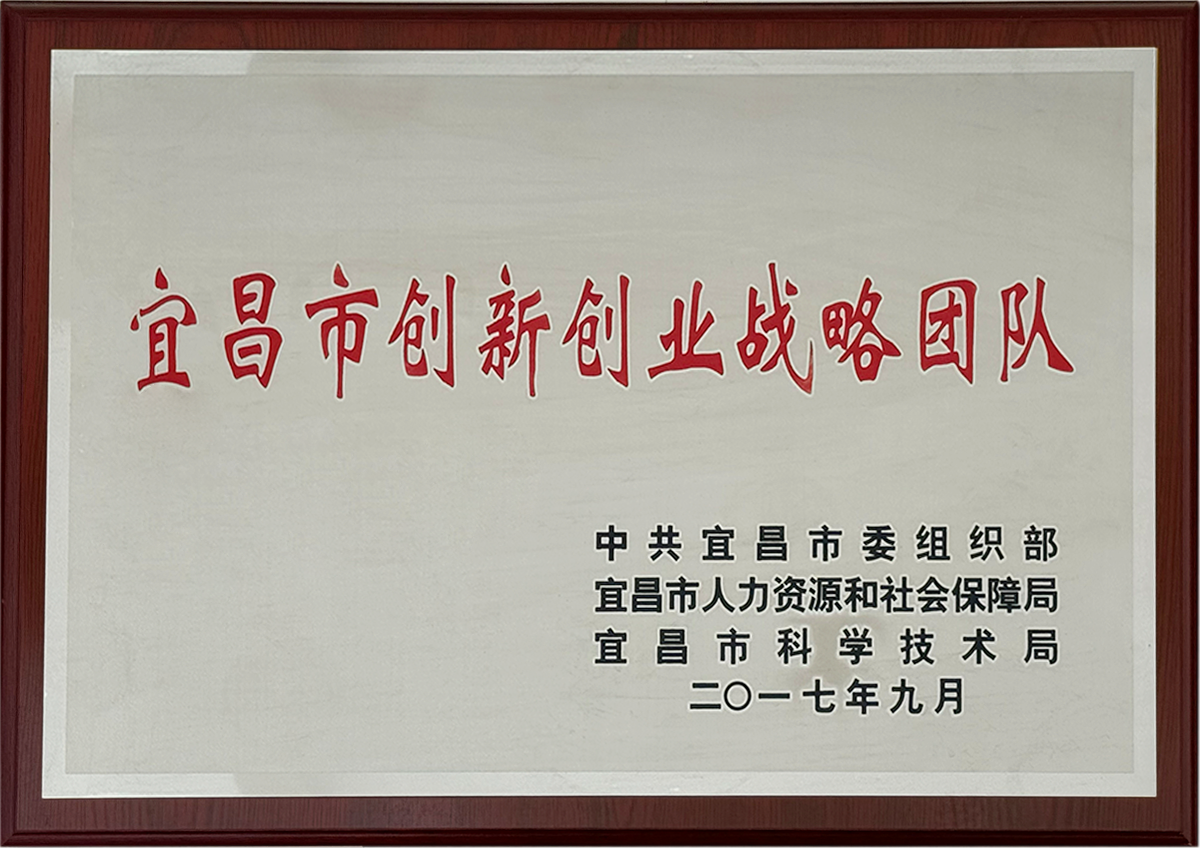 宜昌市创新创业战略团队
中共宜昌市委组织部
宜昌市人力资源和社会保障局
宜昌市科学技术局
二〇一七年九月